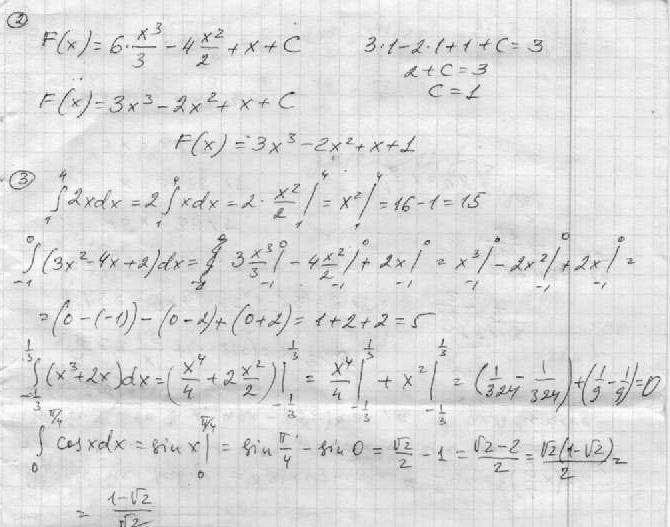 ② F(x) = 6·x³/3 − 4 x²/2 + x + C    3·1 − 2·1 + 1 + C = 3
2 + C = 3
F(x) = 3x³ − 2x² + x + C    C = 1
F(x) = 3x³ − 2x² + x + 1
③ ∫₁⁴ 2xdx = 2∫₁⁴ xdx = 2· x²/2 |₁⁴ = x² |₁⁴ = 16 − 1 = 15
∫₋₁⁰ (3x² − 4x + 2)dx = 3 x³/3 |₋₁⁰ − 4 x²/2 |₋₁⁰ + 2x |₋₁⁰ = x³ |₋₁⁰ − 2x² |₋₁⁰ + 2x |₋₁⁰ =
= (0 − (−1)) − (0 − 2) + (0 + 2) = 1 + 2 + 2 = 5
∫_{−1/3}^{1/3} (x³ + 2x)dx = (x⁴/4 + 2 x²/2) |_{−1/3}^{1/3} = x⁴/4 |_{−1/3}^{1/3} + x² |_{−1/3}^{1/3} = (1/324 − 1/324) + (1/9 − 1/9) = 0
∫₀^{π/4} cosxdx = sin x |₀^{π/4} = sin π/4 − sin 0 = √2/2 − 1 = (√2 − 2)/2 = √2(1 − √2)/2 =
= (1 − √2)/√2